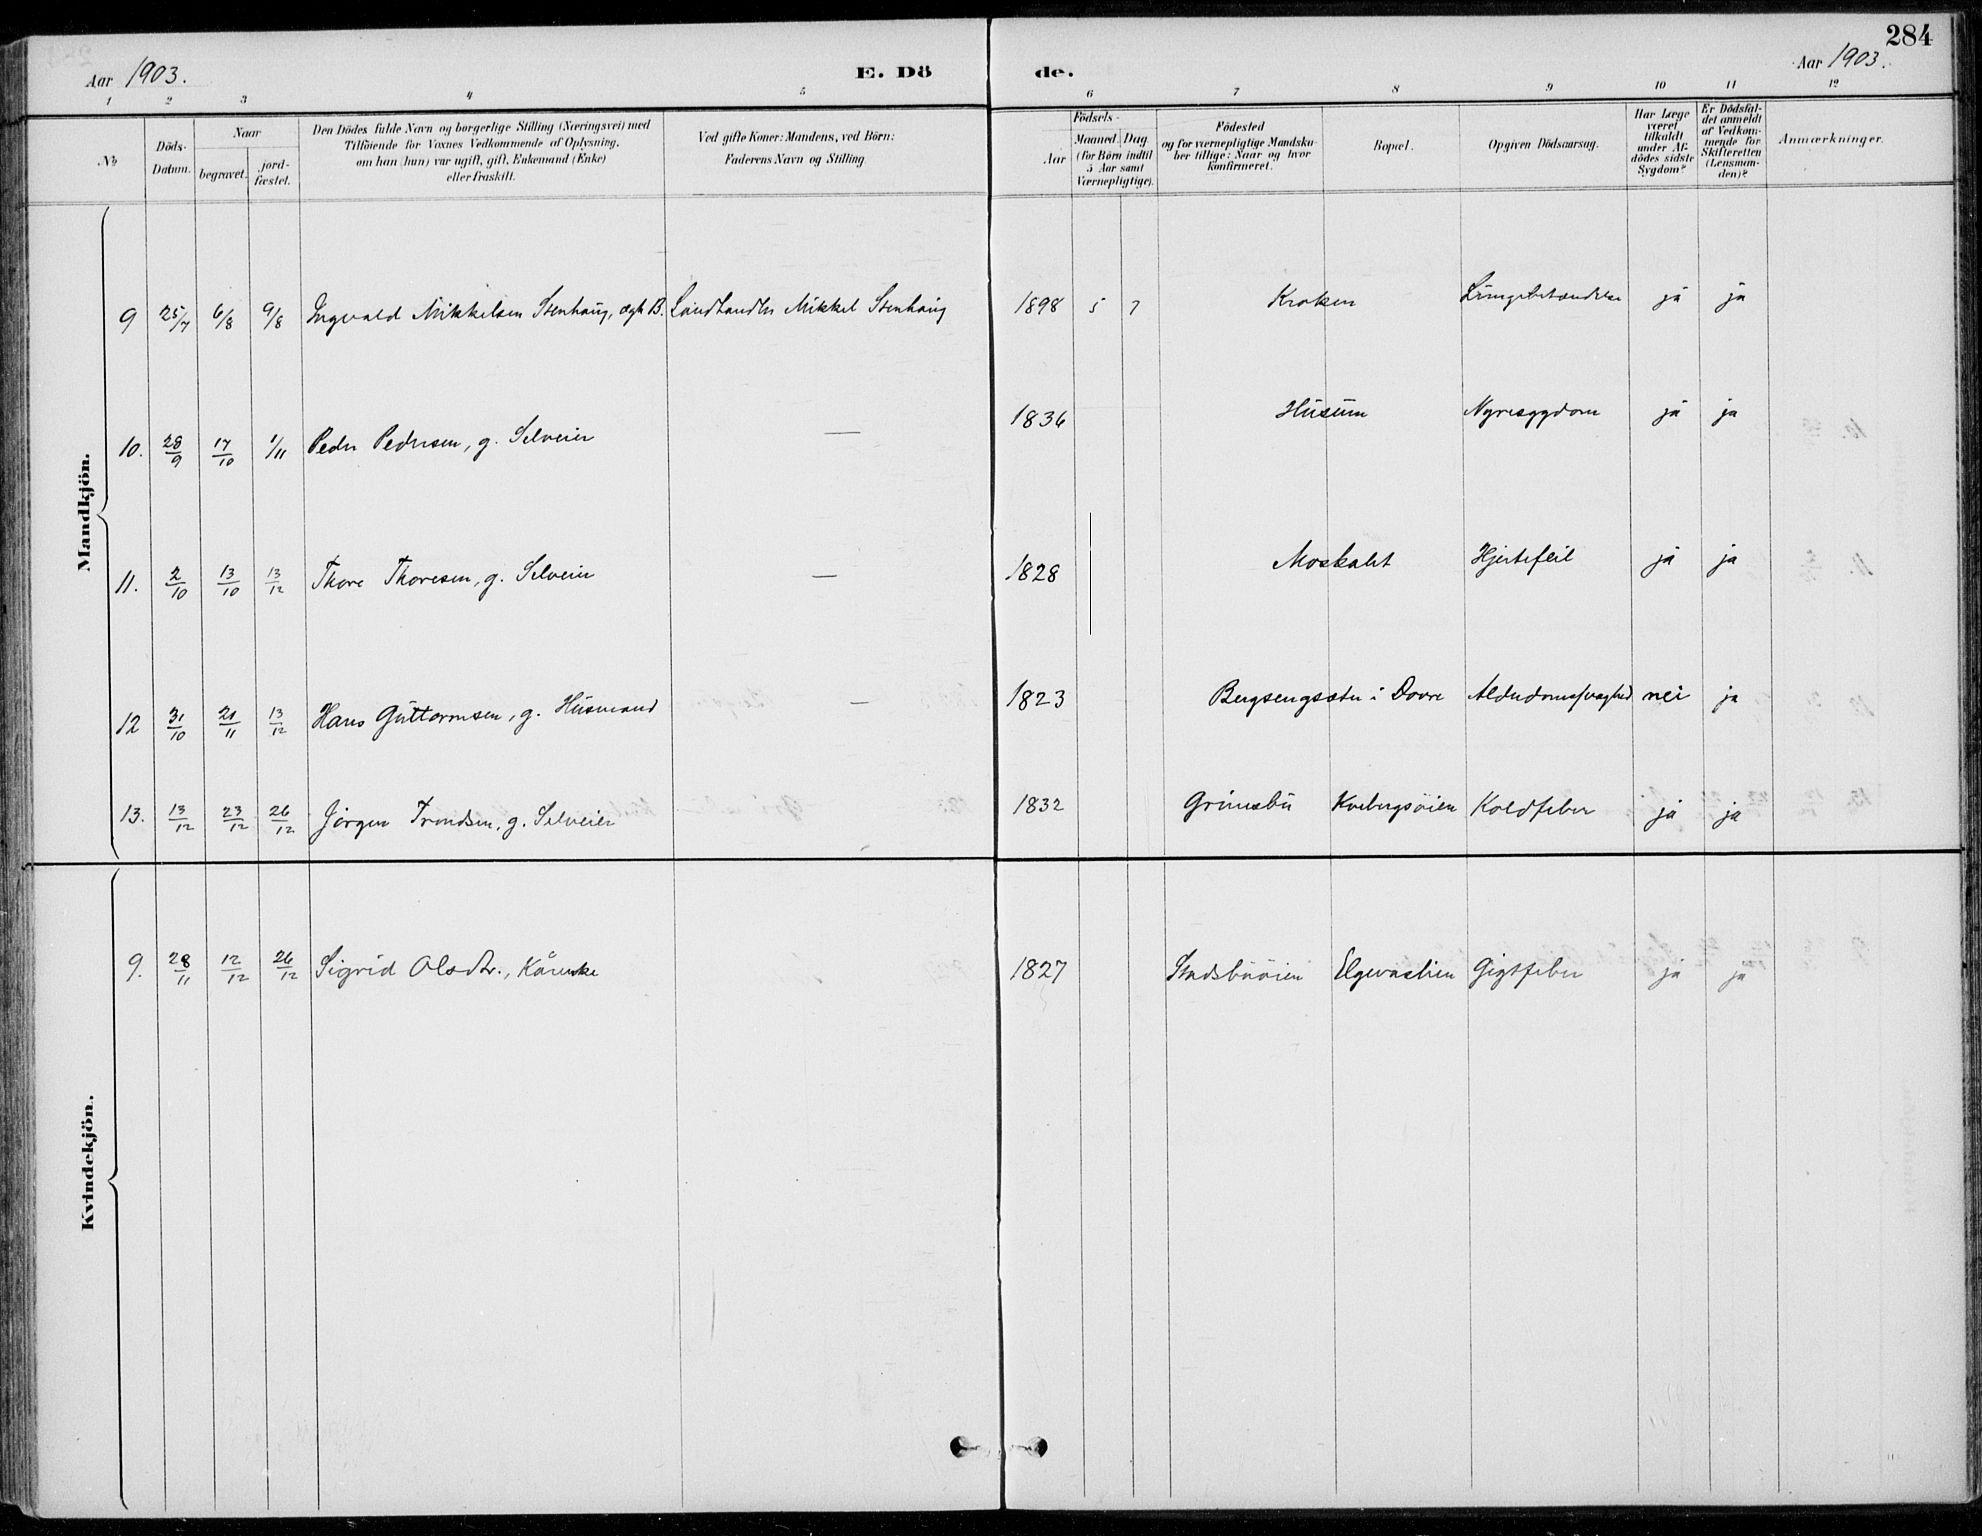 284
Aar 1903.
E. Dö de.
Aar 1903.
1 2 3 4 5 6 7 8 9 10 11 12
No
Döds-Datum.
Naar
begravet.
jord-fæstet.
Den Dödes fulde Navn og borgerlige Stilling (Næringsvei) med
Tilföiende for Voxnes Vedkommende af Oplysning,
om han (hun) var ugift, gift, Enkemand (Enke)
eller fraskilt.
Ved gifte Koner: Mandens, ved Börn:
Faderens Navn og Stilling
Födsels-
Aar
Maaned. Dag
(for Börn indtil
5 Aar samt
Værnepligtige).
Födested
og for værnepligtige Mandskaber tillige: Naar og hvor
konfirmeret.
Bopæl.
Opgiven Dödsaarsag.
Har Læge
været
tilkaldt
under Af-
dödes sidste
Sygdom?
Er Dödsfal-
det anmeldt
af Vedkom-
mende for
Skifteretten
(Lensman-
den)?
Anmærkninger.
Mandkjön.
9 25/7 6/8 9/8 Ingvald Mikkelsen Stenhaug, ægte B. Landhandler Mikkel Stenhaug 1898 5 7 Kroken Lungebetændelse ja ja
10. 28/9 17/10 1/11 Peder Pedersen, g. Selveier — 1836 Husum Nyresygdom ja ja
11. 2/10 13/10 13/12 Thore Thoresen, g. Selveier — 1828 Moskalet Hjertefeil ja ja
12 31/10 21/11 13/12 Hans Guttormsen, g. Husmand — 1823 Bergsengsæter i Dovre Alderdomssvaghed nei ja
13. 13/12 23/12 26/12 Jörgen Trondsen, g. Selveier 1832 Grimsbu Kvebergsöien Koldfeber ja ja
Kvindekjön.
9. 28/11 12/12 26/12 Sigrid Olsdtr., Kårenke 1827 Stadsbuöien Elgevaslien Gigtfeber ja ja